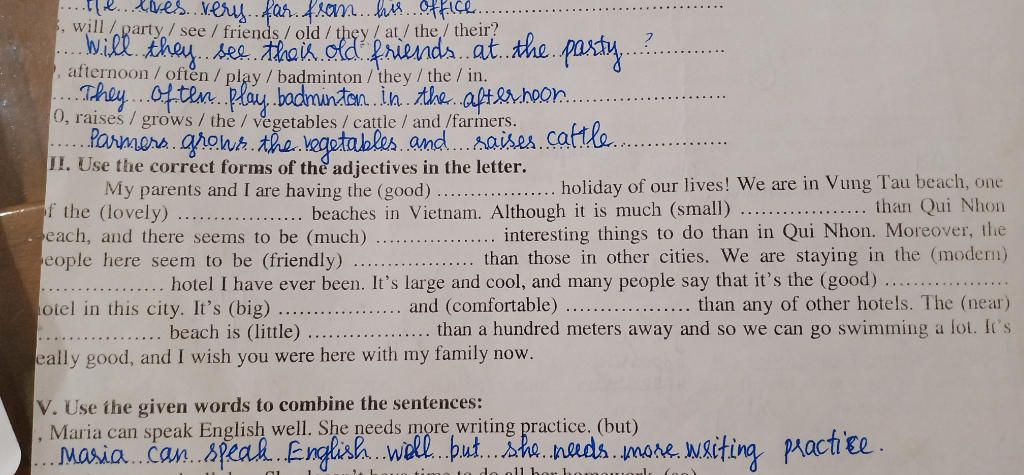 He lives very far from his office
, will / party / see / friends / old / they / at / the / their?
Will they see their old friends at the party ?
, afternoon / often / play / badminton / they / the / in.
They often play badminton in the afternoon
0, raises / grows / the / vegetables / cattle / and /farmers.
Farmers grows the vegetables and raises cattle
II. Use the correct forms of the adjectives in the letter.
My parents and I are having the (good) .................... holiday of our lives! We are in Vung Tau beach, one
f the (lovely) .................... beaches in Vietnam. Although it is much (small) .................... than Qui Nhon
each, and there seems to be (much) .................... interesting things to do than in Qui Nhon. Moreover, the
eople here seem to be (friendly) .................... than those in other cities. We are staying in the (modern)
.................... hotel I have ever been. It's large and cool, and many people say that it's the (good) ....................
otel in this city. It's (big) .................... and (comfortable) .................... than any of other hotels. The (near)
.................... beach is (little) .................... than a hundred meters away and so we can go swimming a lot. It's
eally good, and I wish you were here with my family now.
V. Use the given words to combine the sentences:
, Maria can speak English well. She needs more writing practice. (but)
Maria can speak English well but she needs more writing practice.